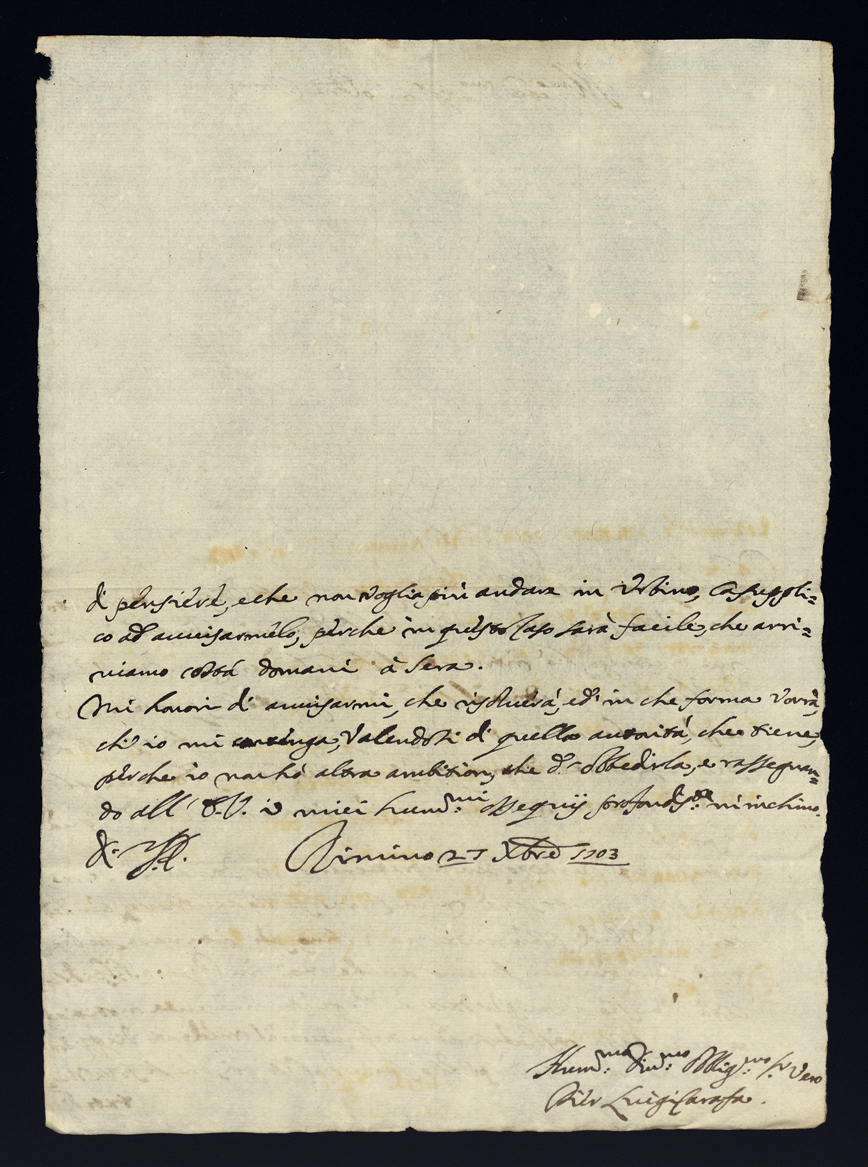 di pensiere, e che non voglia più andare in Urbino, la suppli=
co ad avvisarmelo, perche in questo caso sarà facile, che arri=
viamo costà domani à sera.
Mi honori di avvisarmi, che risolverà, ed in che forma vorrà,
ch'io mi contenga, valendosi di quella autorità, che tiene,
perche io non hò altra ambition, che d'obbedirla, e rassegnan=
do all' E.V. i miei hum.mi ossequij profond.te m'inchino.
Di V.E. Rimino 27 Xbre 1703
Hum.mo Div.mo Obblig.mo S.r Vero
Pier Luigi Carafa.